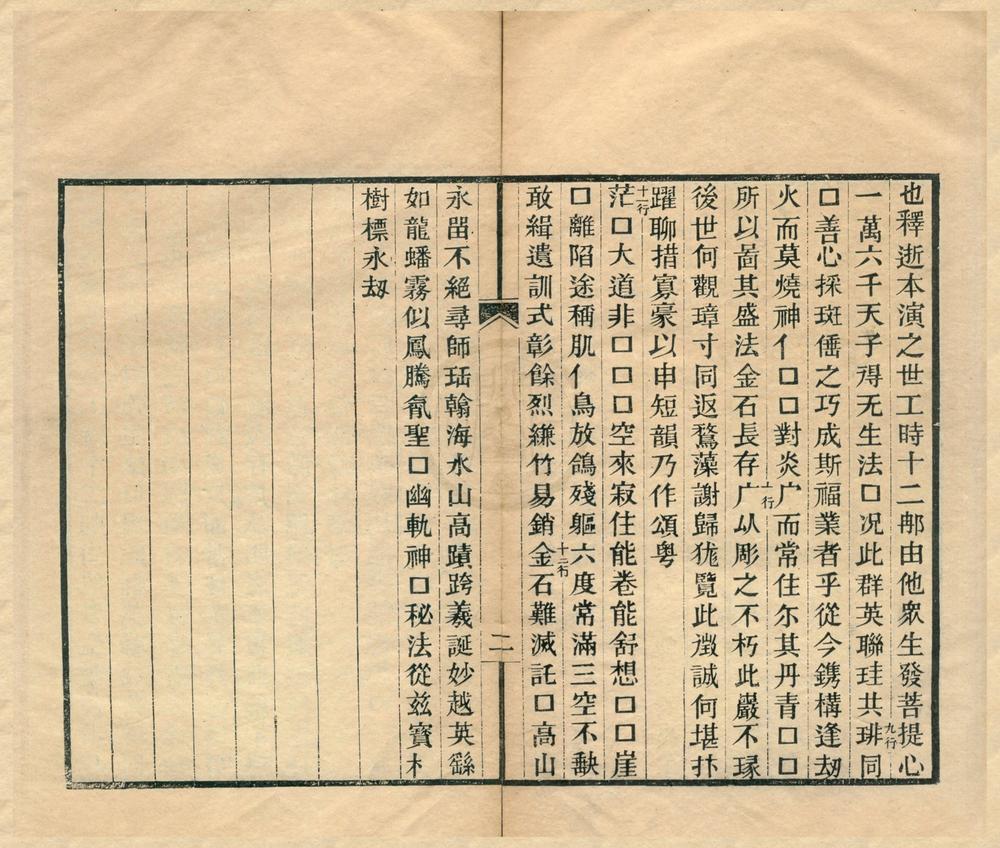 也釋逝本演之世工時十二郍由他眾生發菩提心
一萬六千天子得无生法□况此群英聯珪共琲同
□善心採斑俻之巧成斯福業者乎從今鎸構逢劫
火而莫燒神亻□□對炎广而常住尓其丹青□□
所以啚其盛法金石長存广以彫之不朽此嚴不琢
後世何觀璋寸同返鶩藻謝歸狵覽此徴誠何堪抃
躍聊措寡豪以申短韻乃作頌粤
茫□大道非□□□空來寂住能卷能舒想□□崖
□離陷途稱肌亻鳥放鴿殘軀六度常滿三空不缺
敢緝遺訓式彰餘烈縑竹易銷金石難滅託□高山
永畱不絕尋師珤翰海水山高蹟跨羲誕妙越英繇
如龍蟠霧似鳳騰氛聖□幽軌神□秘法從兹寶木
樹標永劫
九行
十行
十一行
十二行
二